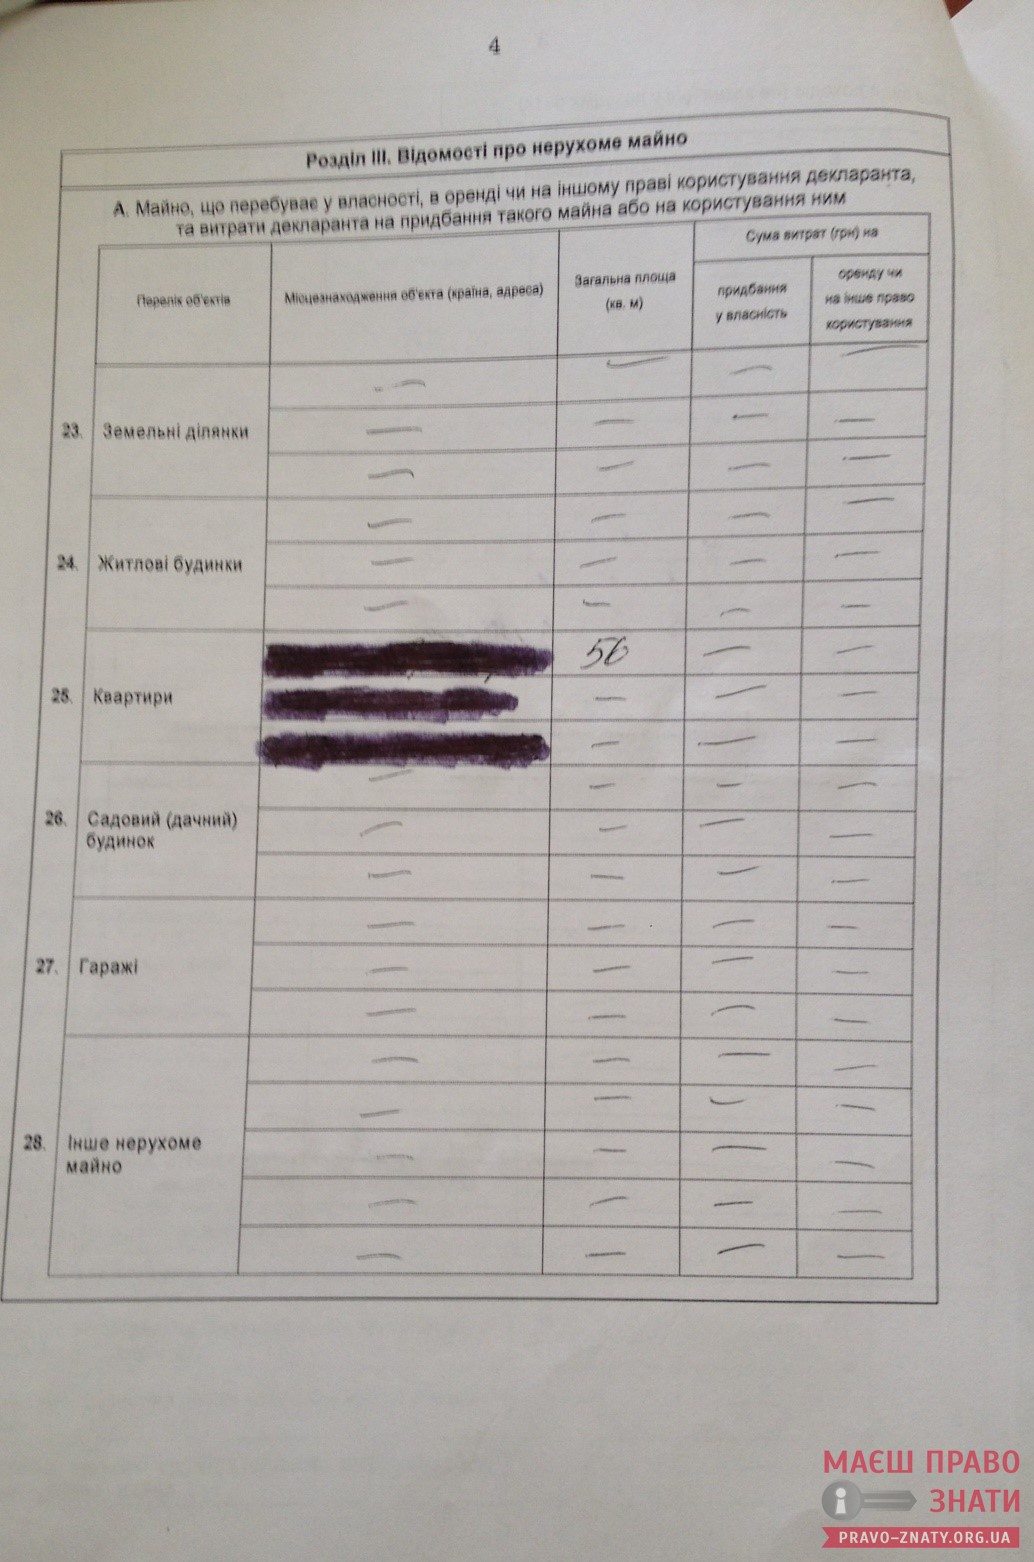 4
Розділ III. Відомості про нерухоме майно
А. Майно, що перебуває у власності, в оренді чи на іншому праві користування декларанта,
та витрати декларанта на придбання такого майна або на користування ним
Перелік об'єктів
Місцезнаходження об'єкта (країна, адреса)
Загальна площа
(кв. м)
Сума витрат (грн) на
придбання
у власність
оренду чи
на інше право
користування
23. Земельні ділянки
24. Житлові будинки
25. Квартири
56
26. Садовий (дачний)
будинок
27. Гаражі
28. Інше нерухоме
майно
МАЄШ ПРАВО
ЗНАТИ
PRAVO-ZNATY.ORG.UA